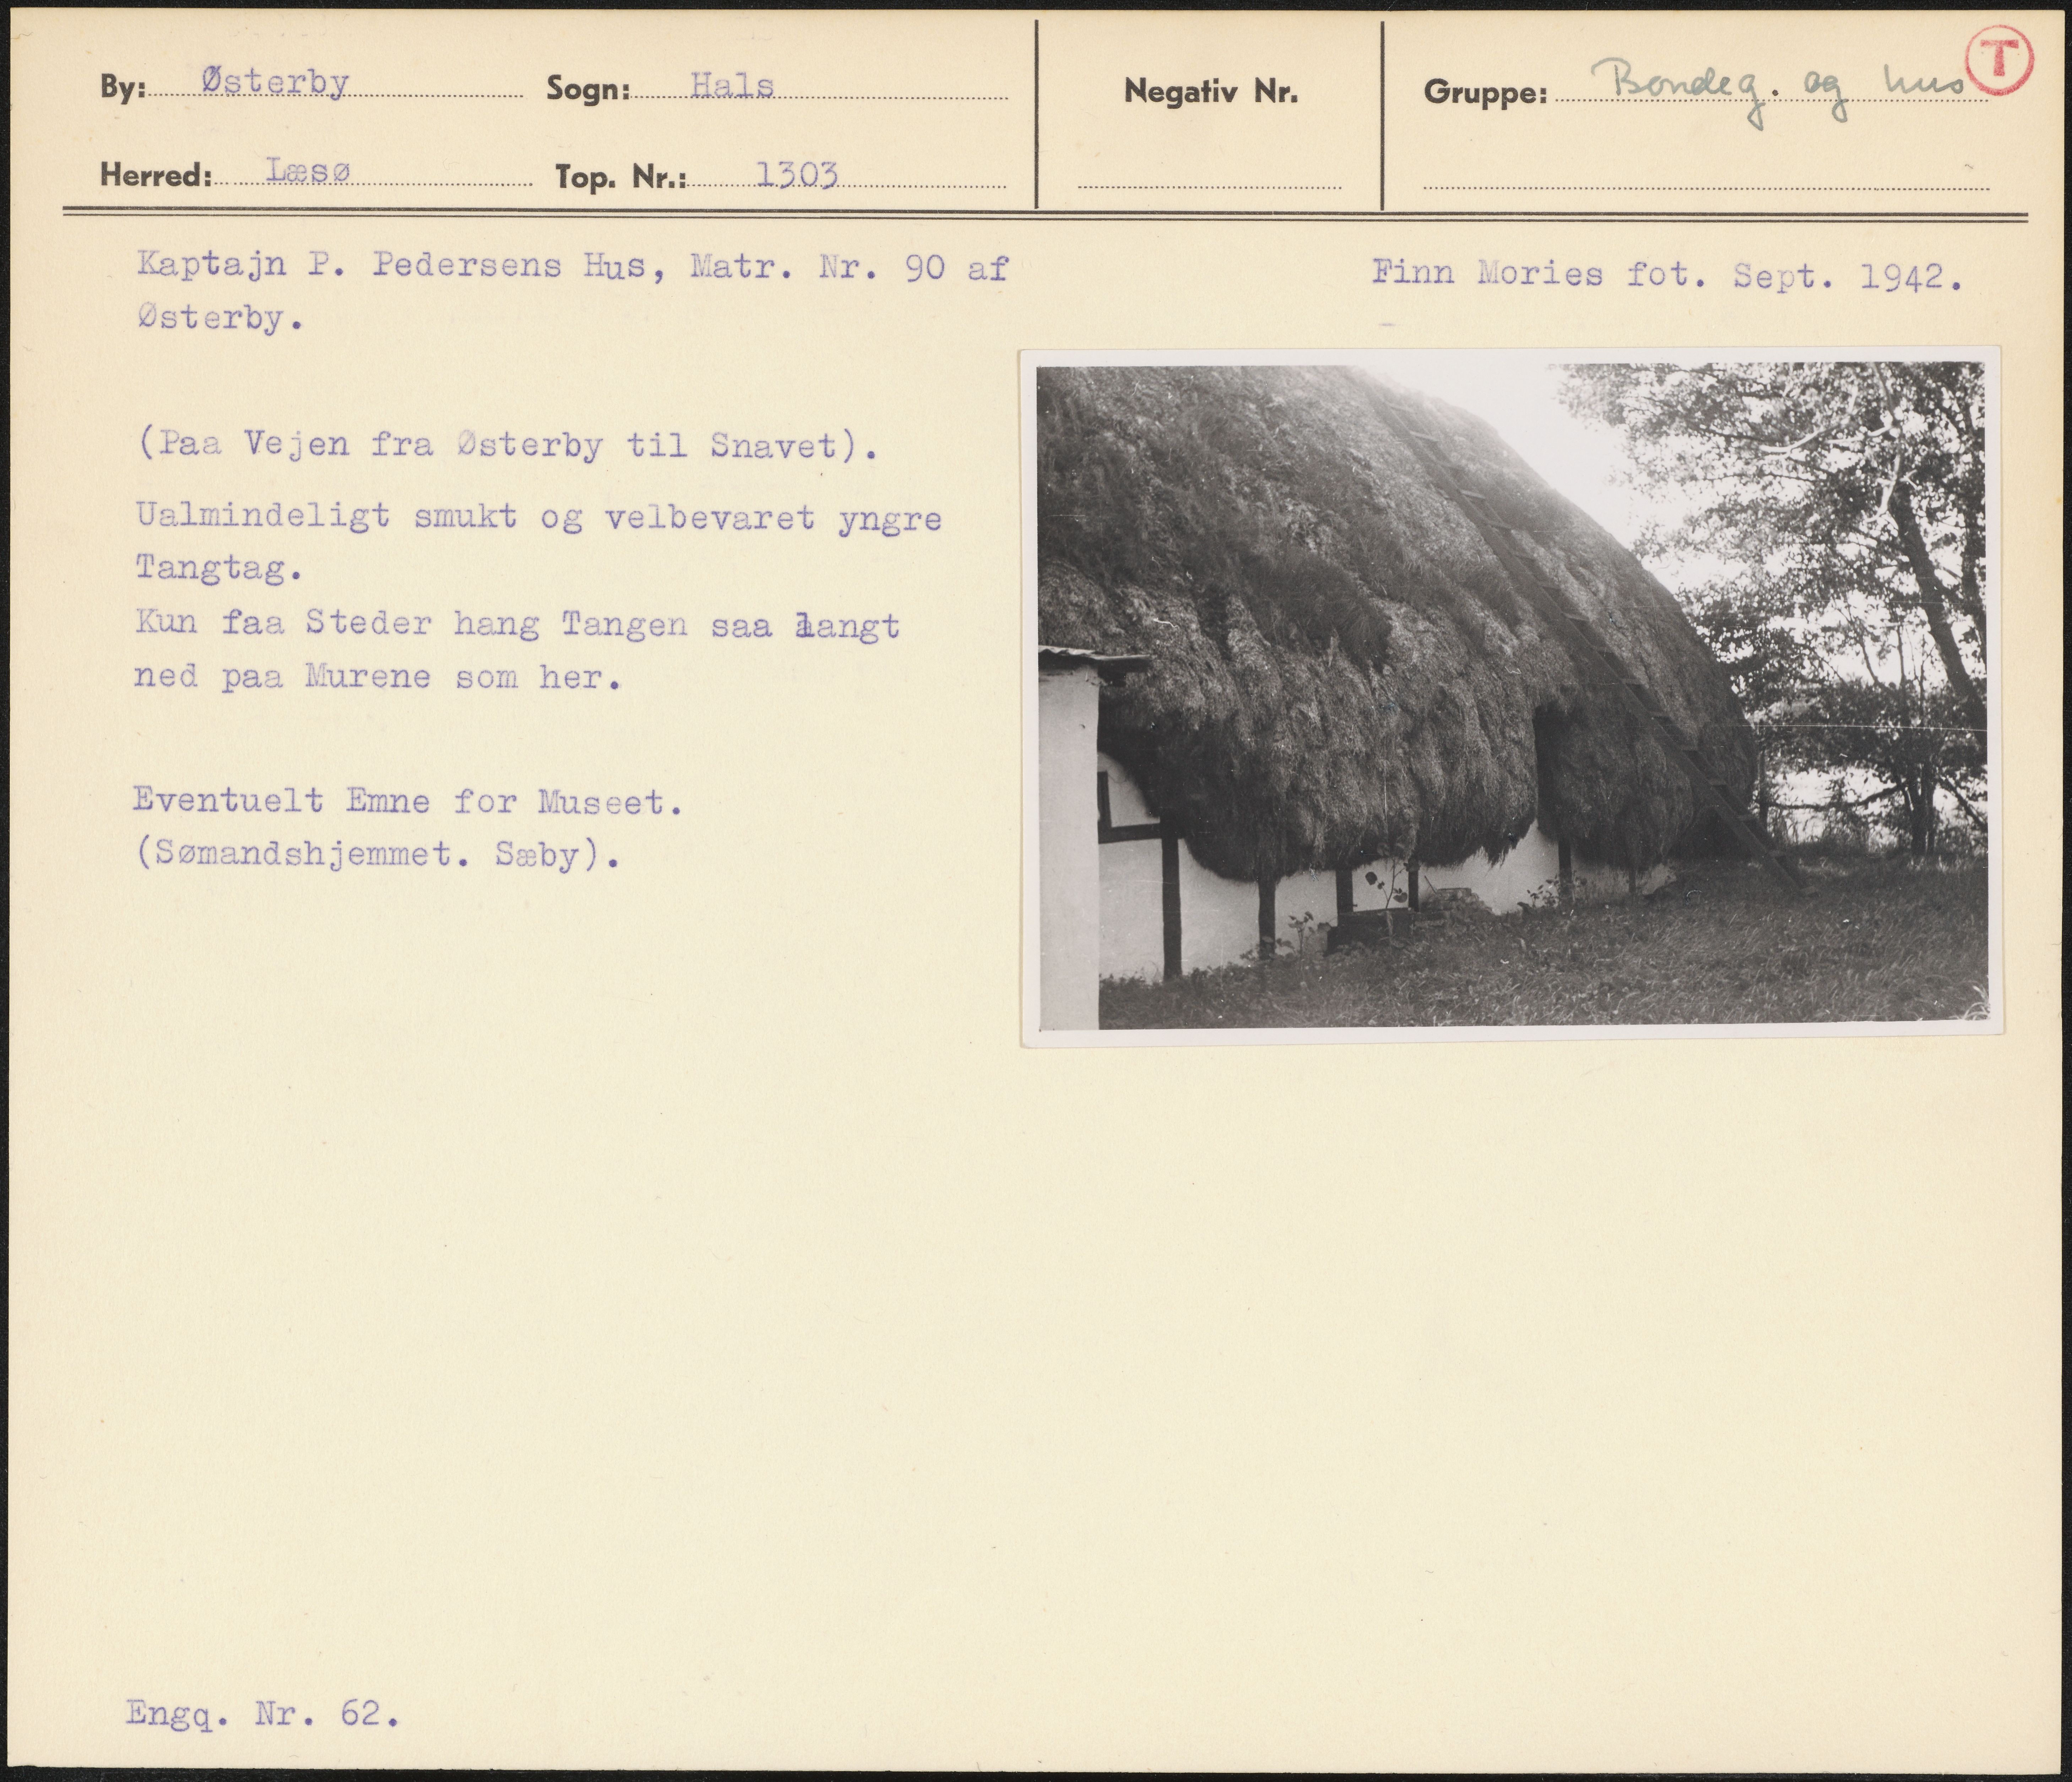 By: Østerby Sogn: Hals Negativ Nr. Gruppe: Bondeg. og hus T
Herred: Læsø Top. Nr.: 1303
Kaptajn P. Pedersens Hus, Matr. Nr. 90 af
Østerby.
Finn Mories fot. Sept. 1942.
(Paa Vejen fra Østerby til Snavet).
Ualmindeligt smukt og velbevaret yngre
Tangtag.
Kun faa Steder hang Tangen saa langt
ned paa Murene som her.
Eventuelt Emne for Museet.
(Sømandshjemmet. Sæby).
Engq. Nr. 62.